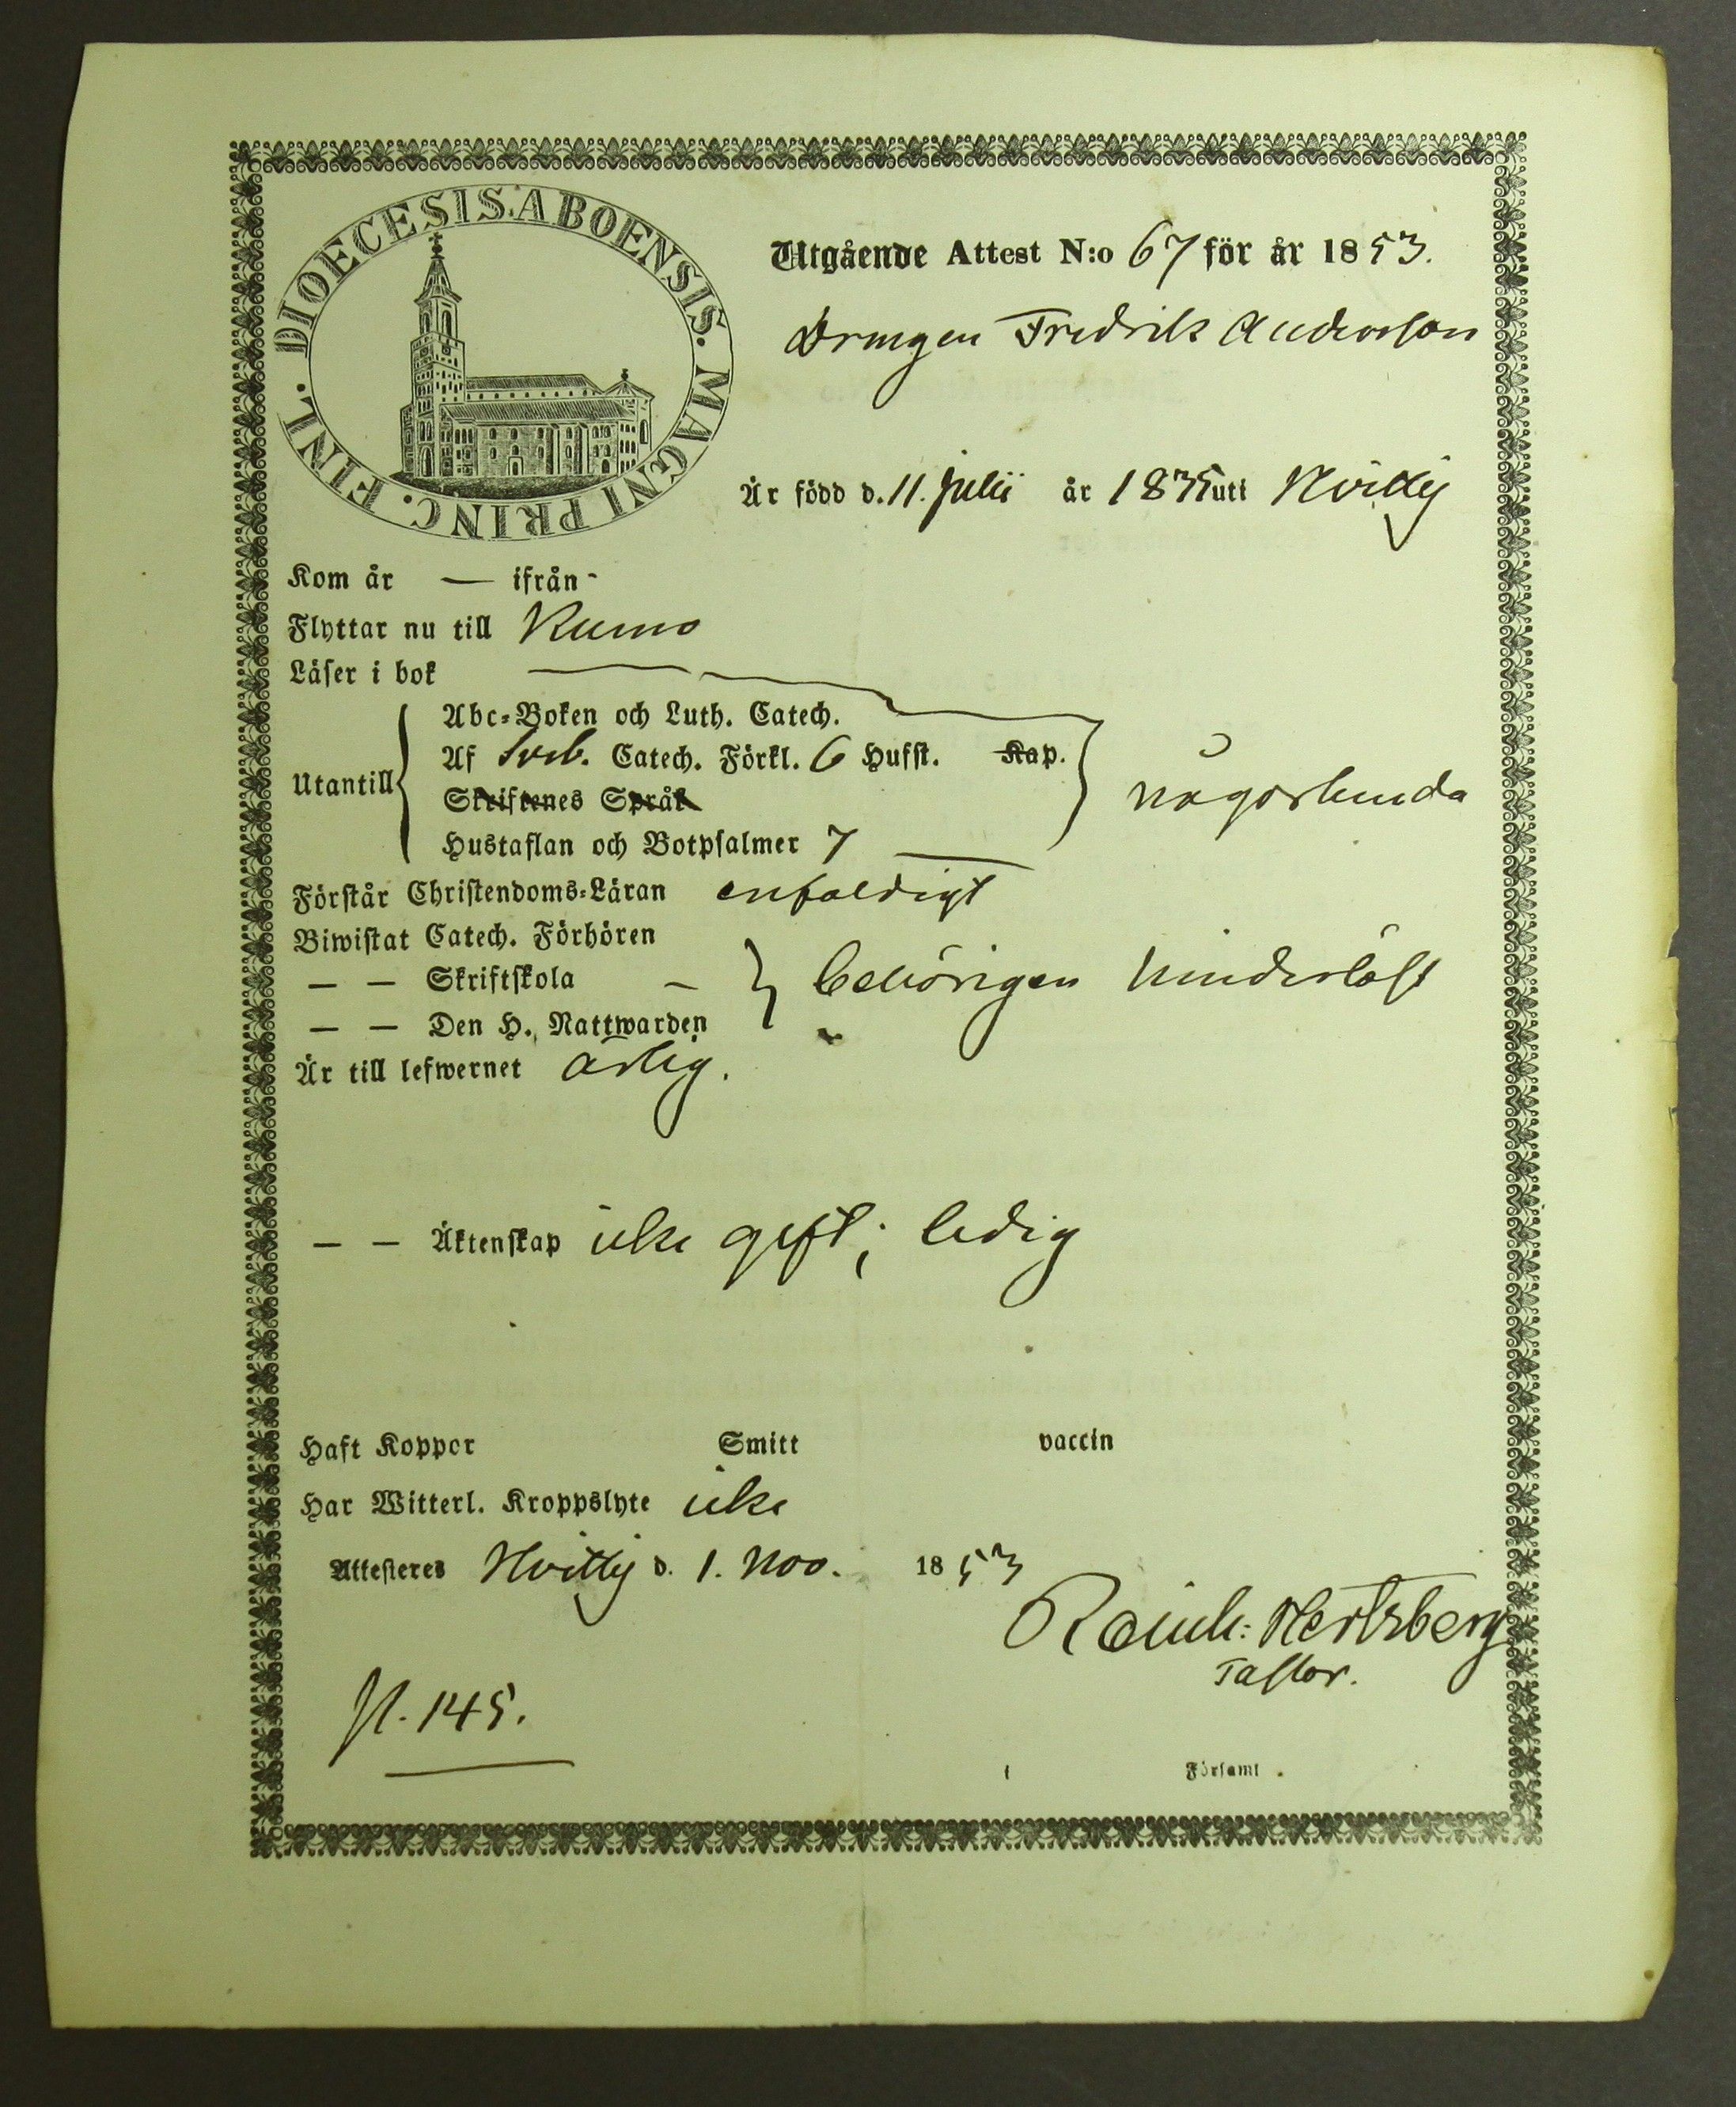 DIOECESIS. ABOENSIS. MAGNI PRINC. FINL.
Utgående Attest N:o 67 för år 1853.
Drengen Fredrik Andersson
Är född d. 11. Julii år 1835 uti Hvittis
Kom år — ifrån -
Flyttar nu till Kumo
Läser i bok
Utantill
Abc-Boken och Luth. Catech.
Af Sveb. Catech. Förkl. 6 Hufst. Kap.
Skriftenes Språk
Hustaflan och Botpsalmer 7
någorlunda
Förstår Christendoms-Läran enfaldigt
Biwistat Catech. Förhören
— — Skriftskola -
— — Den H. Nattwarden
behörigen hinderlöst
Är till lefwernet ärlig.
— — Äktenskap icke gift; ledig
Haft Koppor Smitt vaccin
Har Witterl. Kroppslyte icke
Attesteres Hvittis d. 1. Nov. 1853
Reinh: Hertzberg
Pastor.
145.
i Församl.